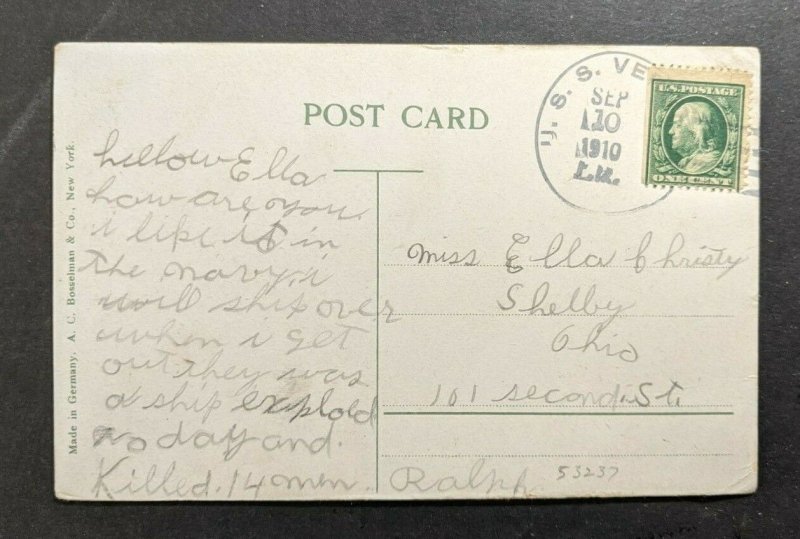 POST CARD
Made in Germany. A. C. Bosselman & Co., New York.
U. S. S. VE
SEP
10
1910
U.S. POSTAGE
ONE CENT
hellow Ella
how are you
i like it in
the navy. i
will ship over
when i get
out they was
a ship explod
to day and.
Killed. 14 men. Ralph
Miss Ella Christy
Shelby
Ohio
101 second. St.
53237